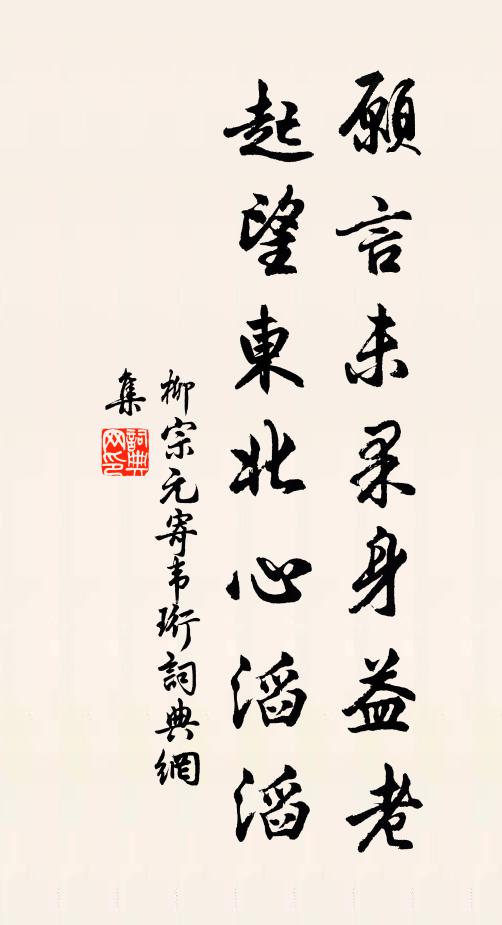 願言未果身益老
起望東北心滔滔
柳宗元寄韦珩詞典網
集
詞典
网印